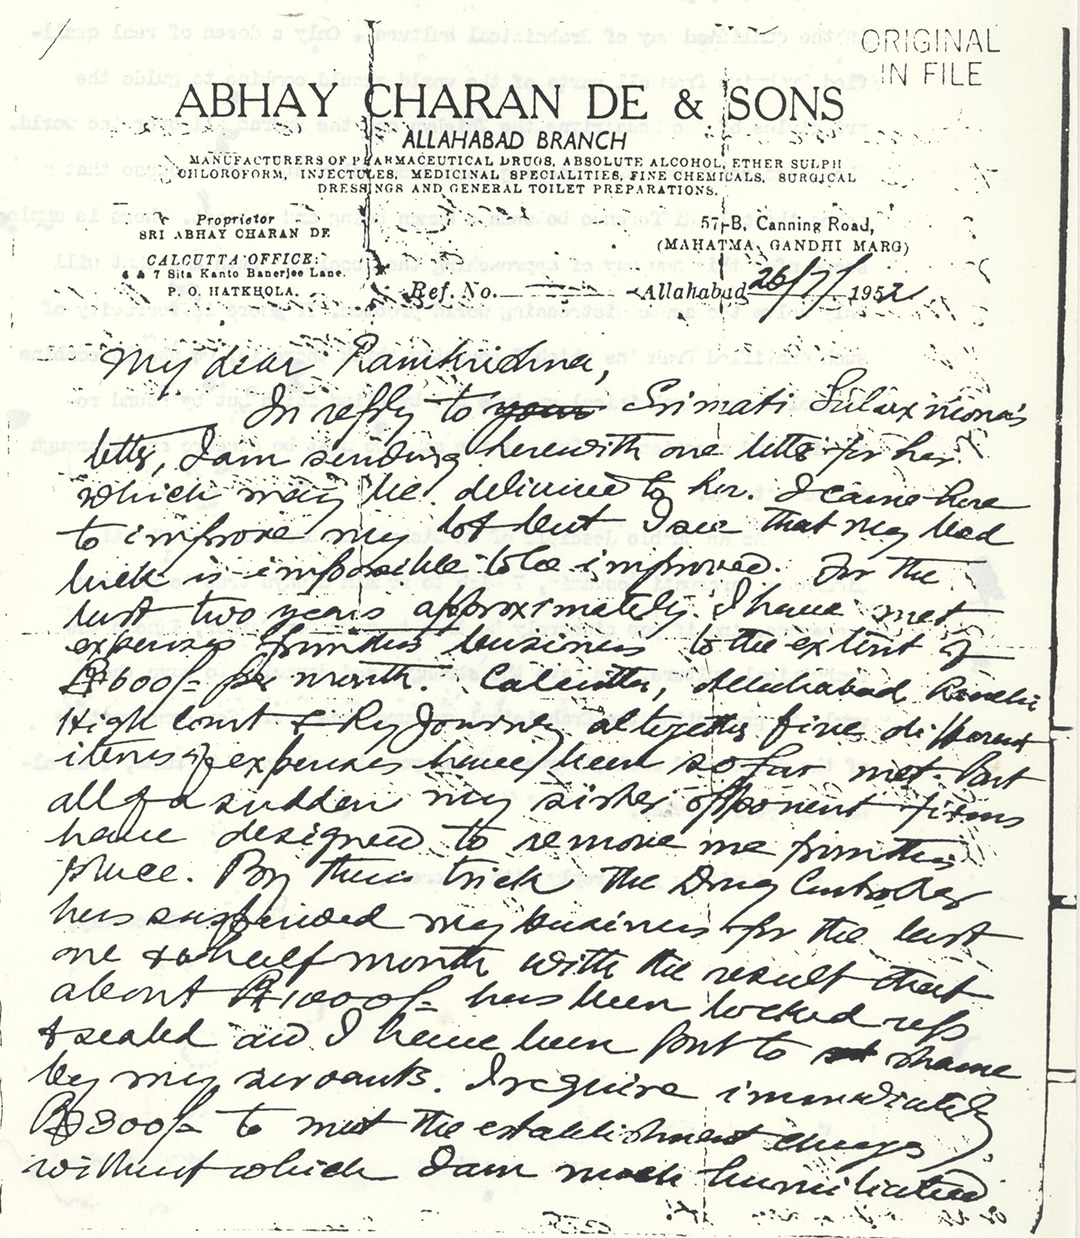 ORIGINAL
IN FILE
ABHAY CHARAN DE & SONS
ALLAHABAD BRANCH
MANUFACTURERS OF PHARMACEUTICAL DRUGS, ABSOLUTE ALCOHOL, ETHER SULPH
CHLOROFORM, INJECTULES, MEDICINAL SPECIALITIES, FINE CHEMICALS, SURGICAL
DRESSINGS AND GENERAL TOILET PREPARATIONS.
Proprietor
SRI ABHAY CHARAN DE
CALCUTTA OFFICE:
6 & 7 Sita Kanto Banerjee Lane
P. O. HATKHOLA.
57-B, Canning Road,
(MAHATMA GANDHI MARG)
Ref. No. Allahabad 26/7/ 1952
My dear Ramkrishna,
In reply to your Srimati
letter, I am sending herewith one letter for her
which may be delivered to her. I came here
to improve my lot but I see that my bad
luck is impossible to be improved. For the
last two years approximately I have met
expenses from this business to the extent of
Rs 600/- per month. Calcutta, Allahabad
High Court & Rly Journey altogether five different
items of expenses have been so far met. But
all of a sudden my sister opponent firms
have designed to remove me from this
place. By their trick the Drug Controller
has suspended my business for the last
one & a half month with the result that
about Rs 1000/- has been locked up
& sealed and I have been put to shame
by my servants. I require immediately
Rs 300/- to meet the establishment charges
without which I am much humiliated